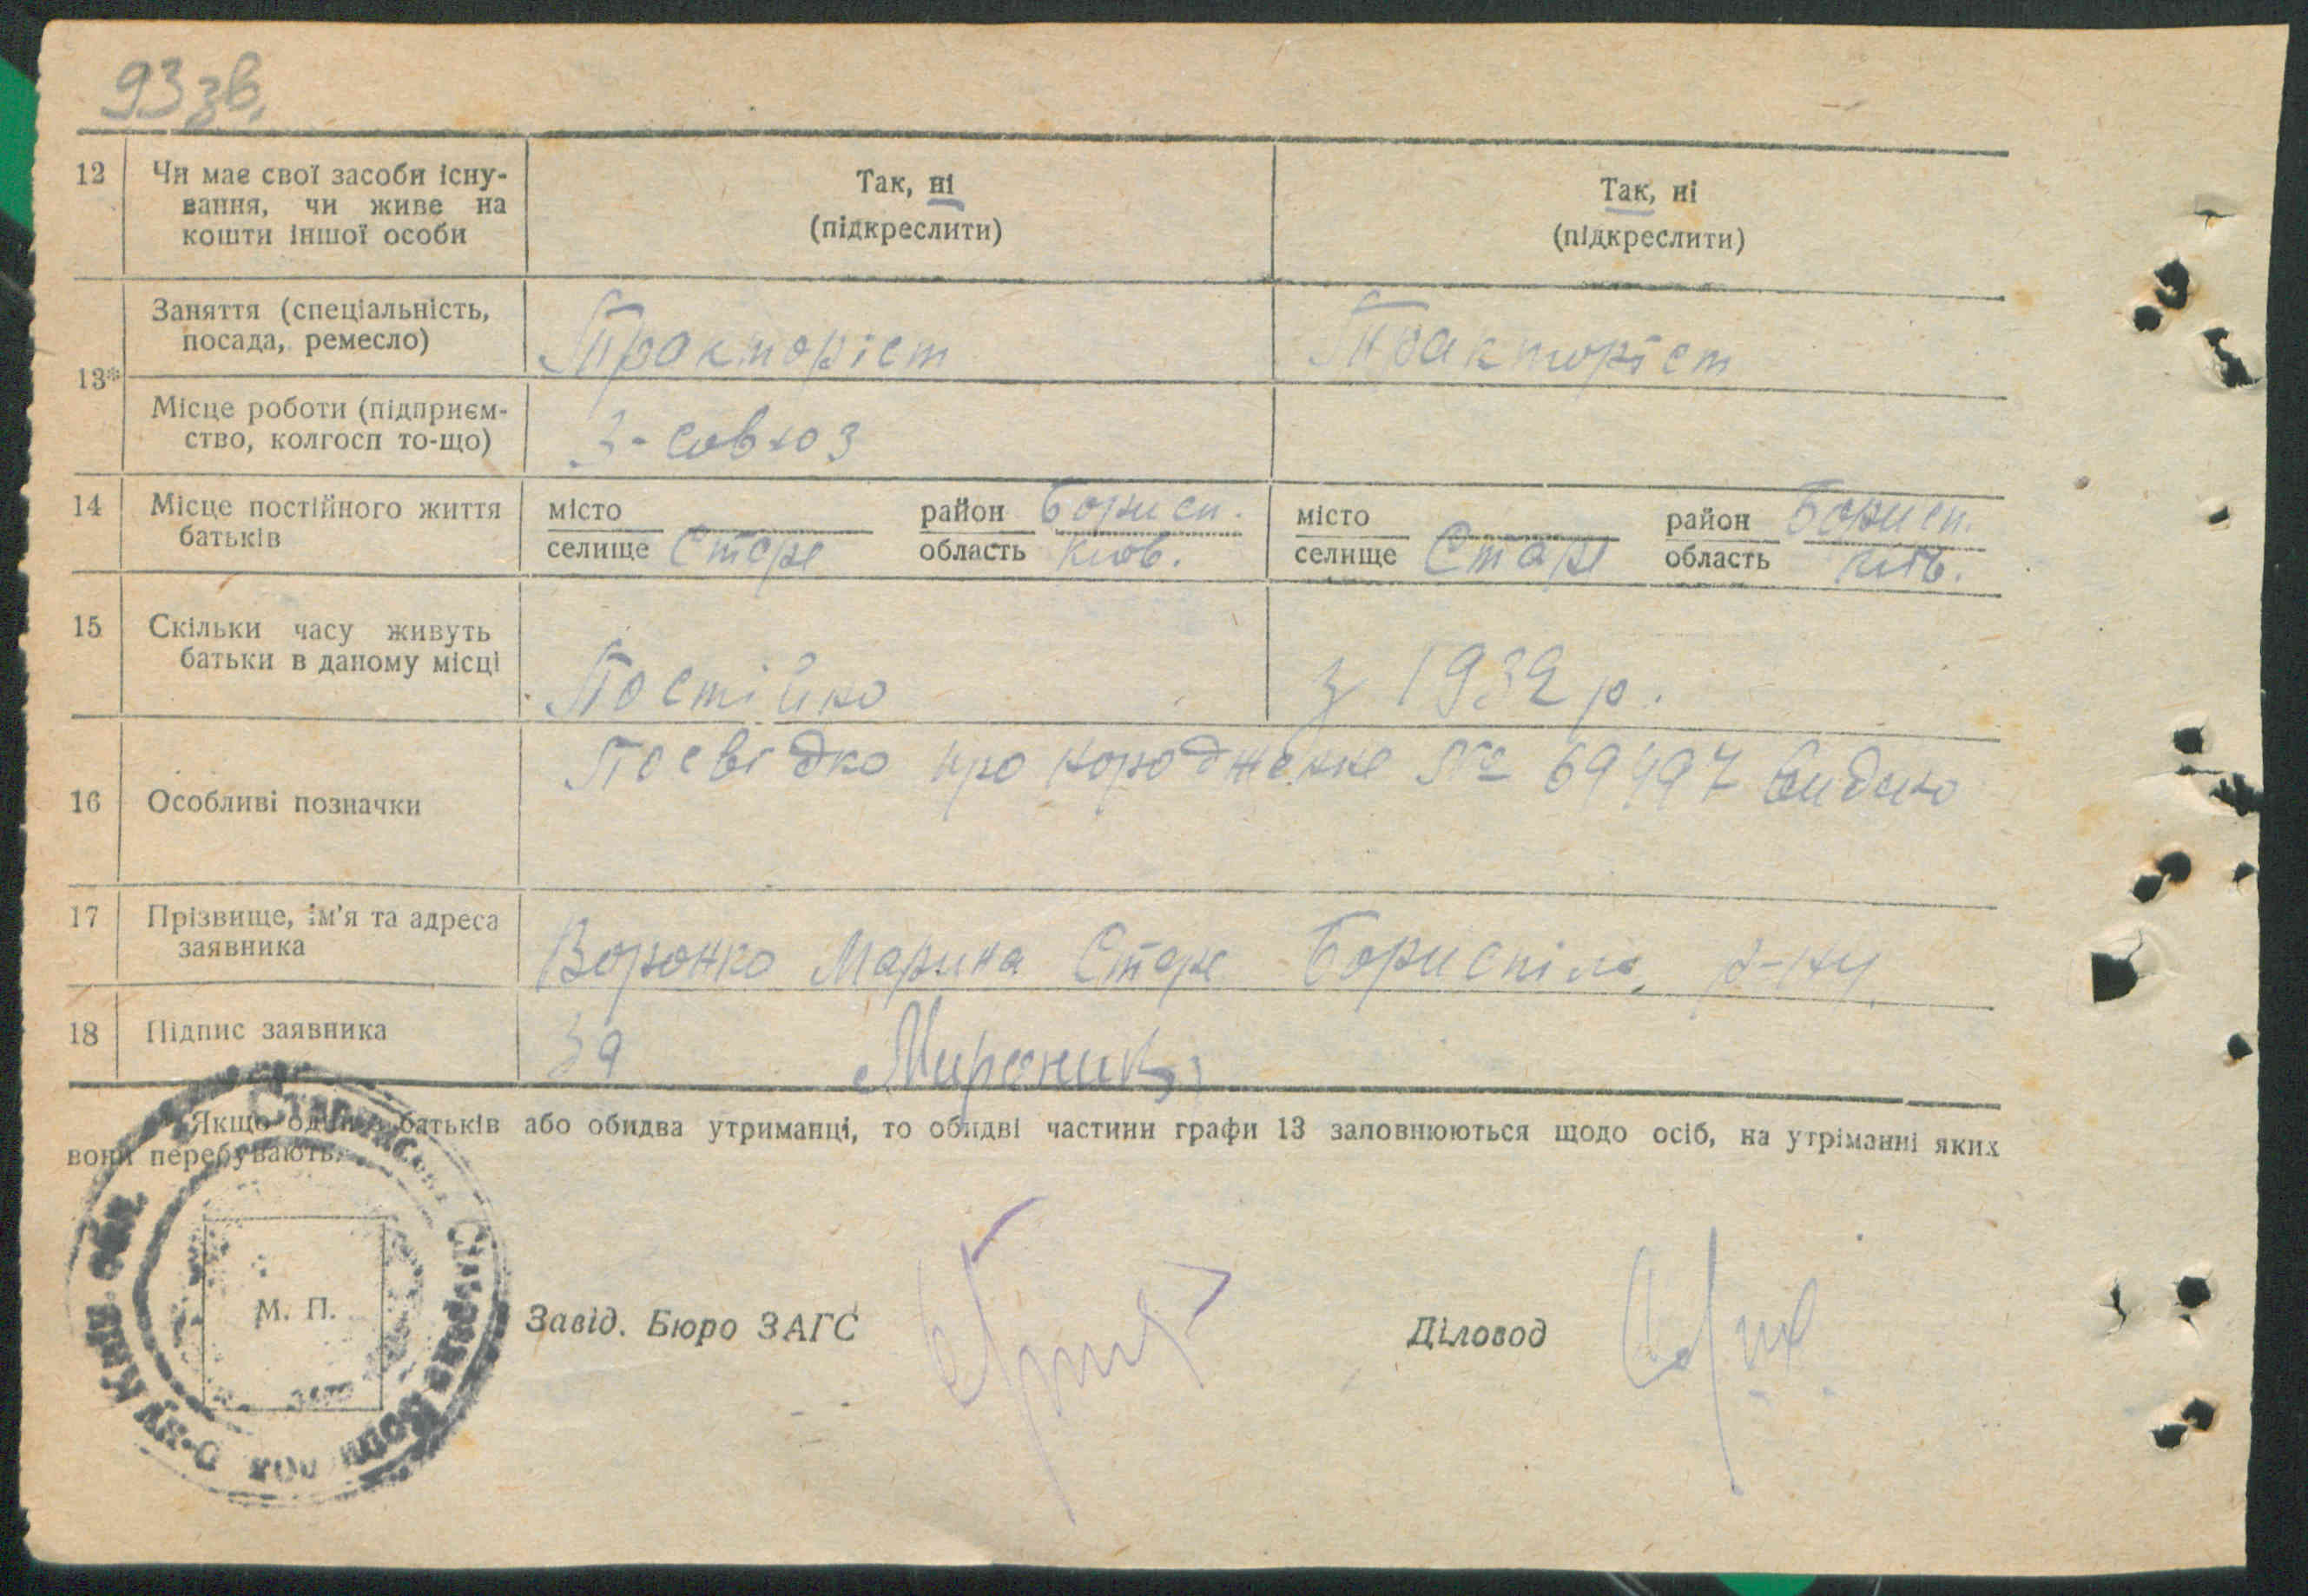 93 зв.
12 Чи має свої засоби існу-
вання, чи живе на
кошти іншої особи
Так, ні
(підкреслити)
Так, ні
(підкреслити)
13*
Заняття (спеціальність,
посада, ремесло)
Тракторіст
Тракторіст
Місце роботи (підприєм-
ство, колгосп то-що)
З-совхоз
14 Місце постійного життя
батьків
місто
селище Старе
район Борисп.
область Київ.
місто
селище Старе
район Борисп.
область Київ.
15 Скільки часу живуть
батьки в даному місці
Постійно
з 1932 р.
16 Особливі позначки
Посвідка про народження № 69497 видано
17 Прізвище, ім'я та адреса
заявника
Воронко Марина Старе Бориспіль. р-ну.
18 Підпис заявника
За
Якщо один з батьків або обидва утриманці, то обидві частини графи 13 заповнюються щодо осіб, на утріманні яких
вони перебувають.
М. П.
Завід. Бюро ЗАГС
Діловод